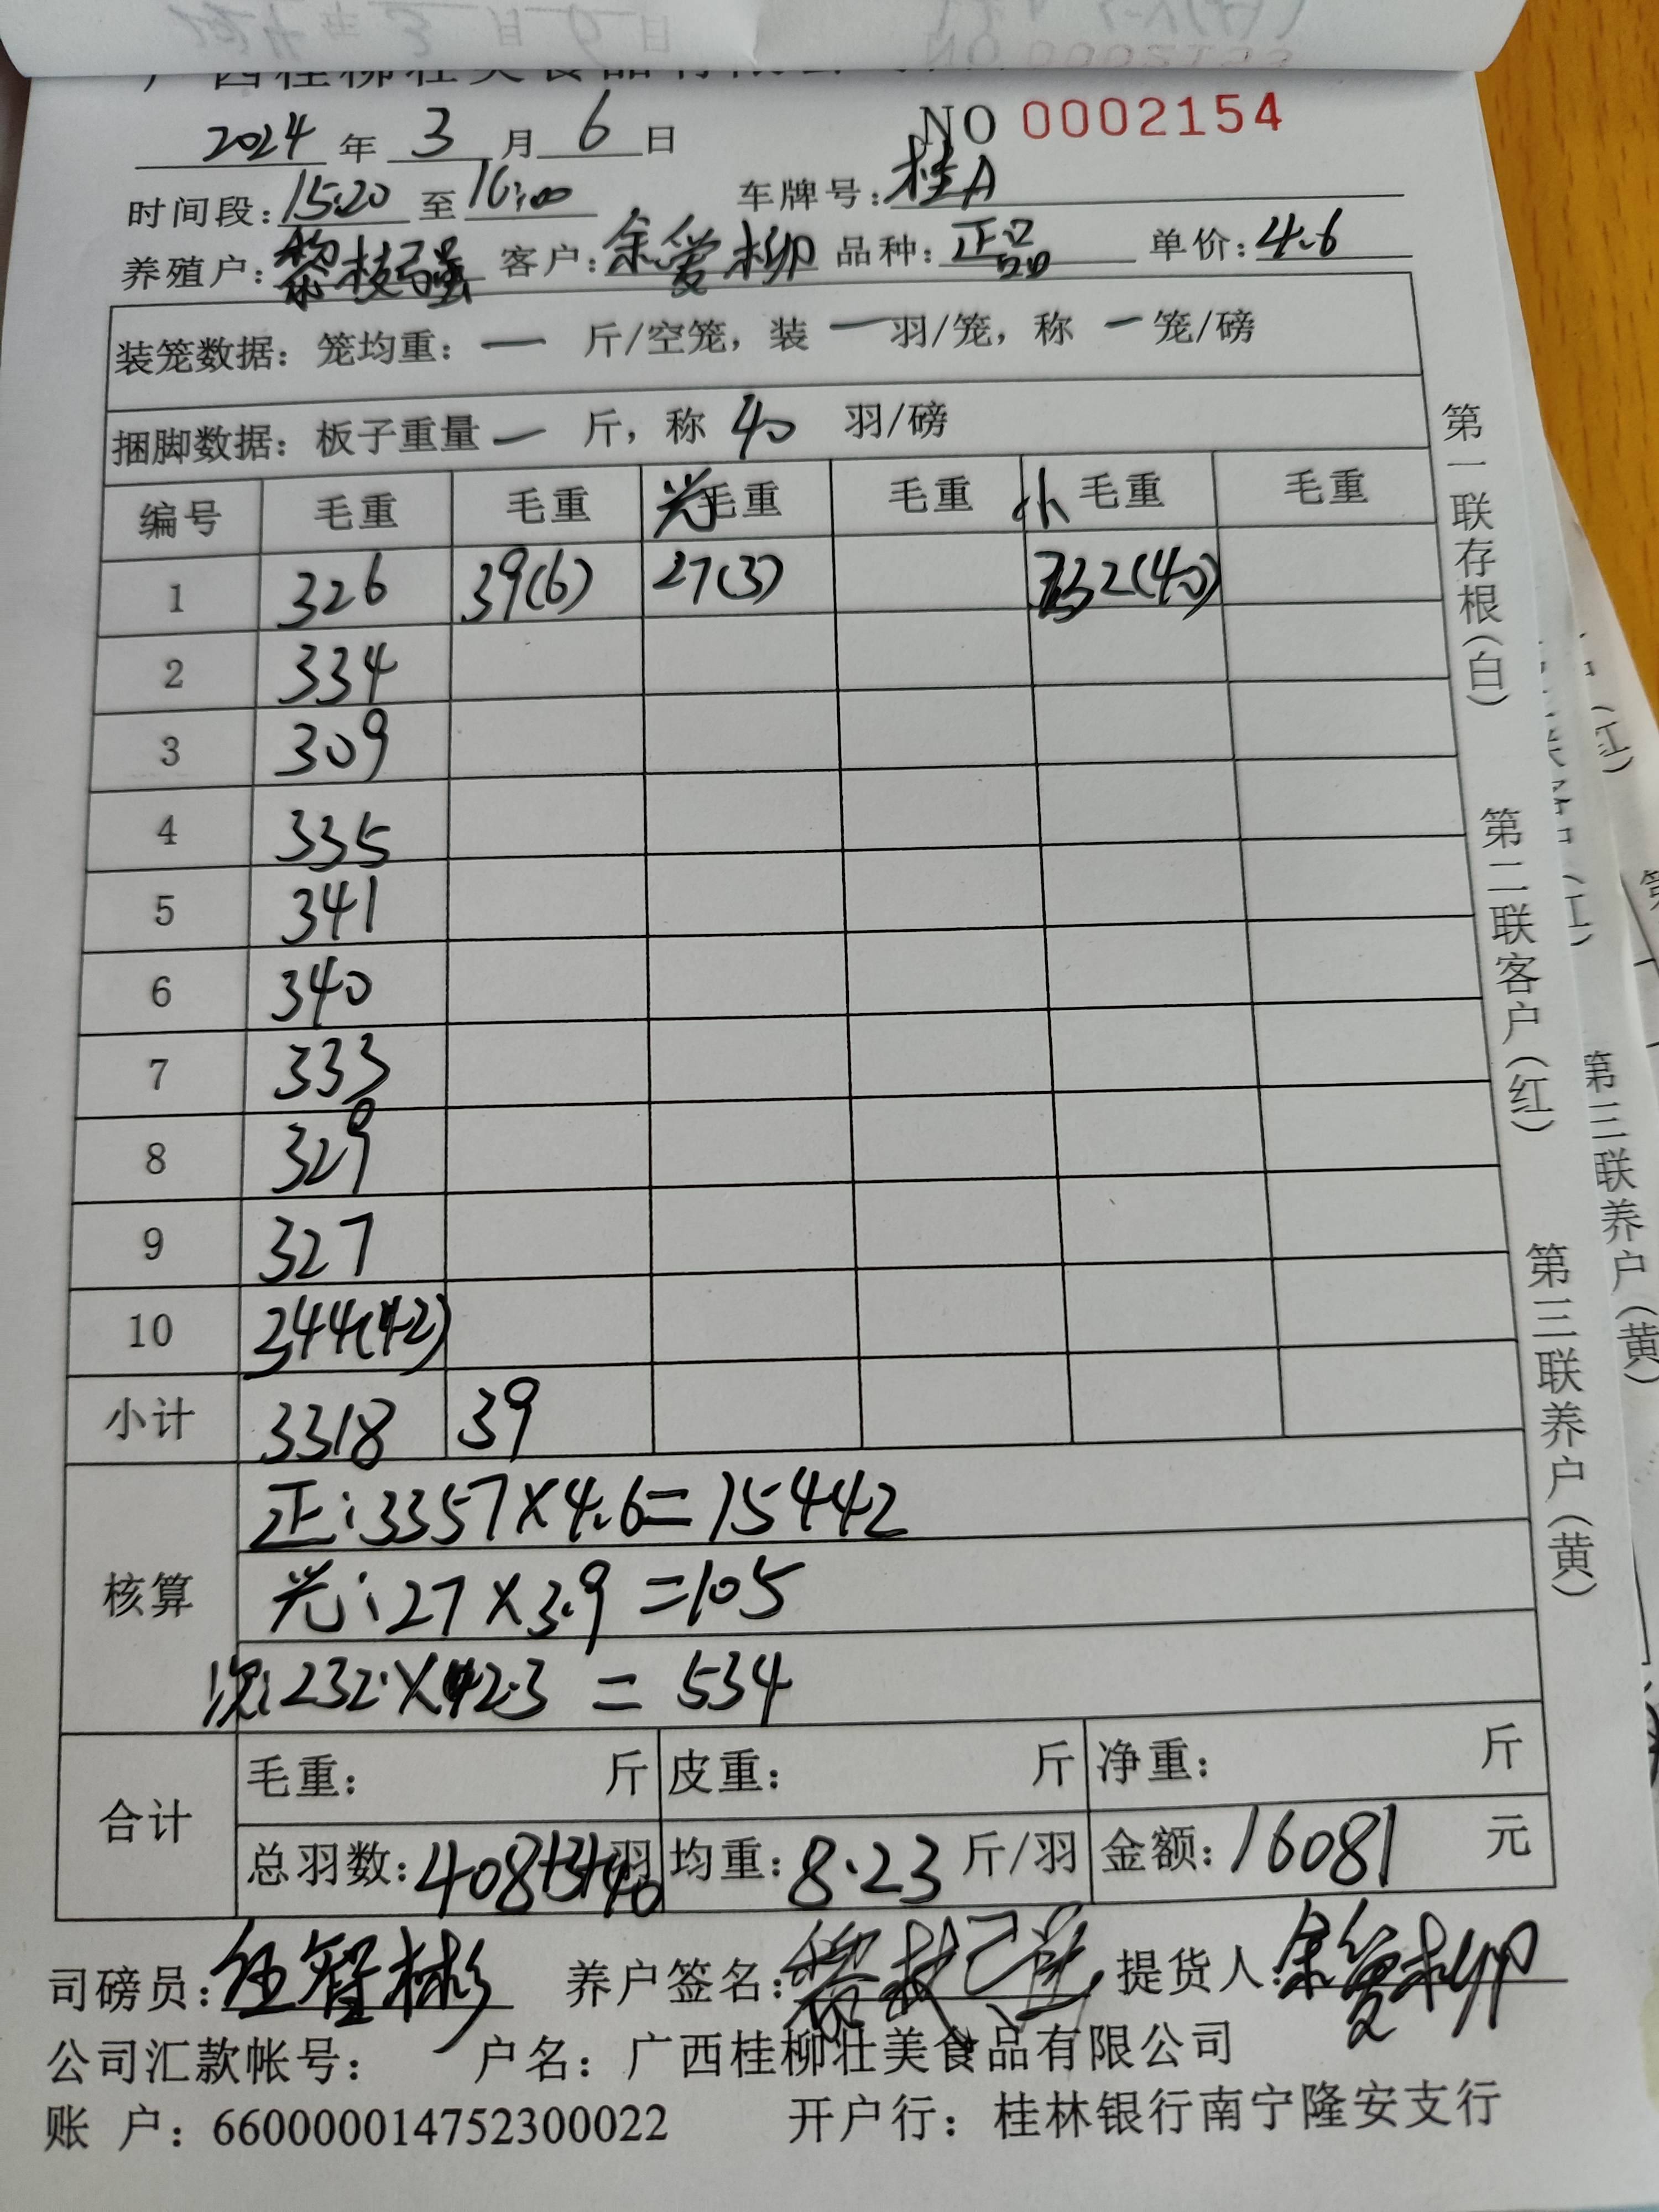 2024 年 3 月 6 日 NO 0002154
时间段: 15:20 至 16:00 车牌号: 桂A
养殖户: 黎枝强 客户: 余爱柳 品种: 正品 单价: 4.6
装笼数据: 笼均重: 一 斤/空笼, 装 一 羽/笼, 称 一 笼/磅
捆脚数据: 板子重量 一 斤, 称 40 羽/磅
编号 毛重 毛重 光 毛重 毛重 小 毛重 毛重
1 326 39(6) 27(3) 232(40)
2 334
3 309
4 335
5 341
6 340
7 333
8 329
9 327
10 344(42)
小计 3318 39
正: 3357×4.6=15442
核算 光: 27×3.9=105
次: 232×2.3=534
合计 毛重: 斤 皮重: 斤 净重: 斤
总羽数: 408+3+40 羽 均重: 8.23 斤/羽 金额: 16081 元
司磅员: 养户签名: 提货人: 余爱柳
公司汇款帐号: 户名: 广西桂柳壮美食品有限公司
账 户: 660000014752300022 开户行: 桂林银行南宁隆安支行
第一联存根(白) 第二联客户(红) 第三联养户(黄)
第三联养户(黄)